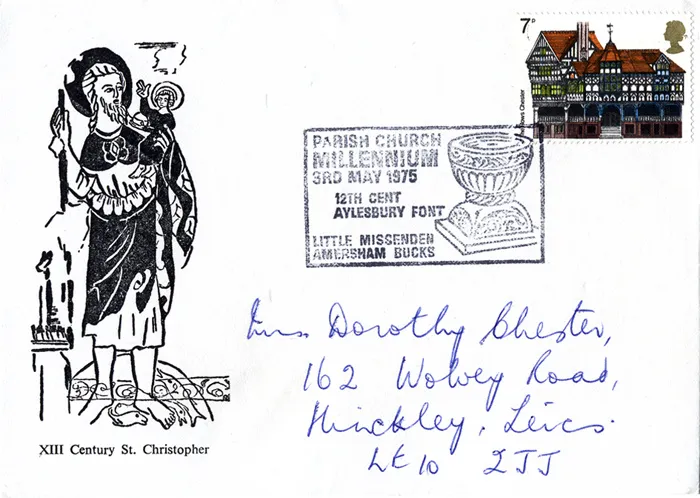 7P
The Rows Chester
PARISH CHURCH
MILLENNIUM
3RD MAY 1975
12TH CENT
AYLESBURY FONT
LITTLE MISSENDEN
AMERSHAM BUCKS
Mrs Dorothy Chester,
162 Wolvey Road,
Hinckley, Leics.
LE10 2JJ
XIII Century St. Christopher